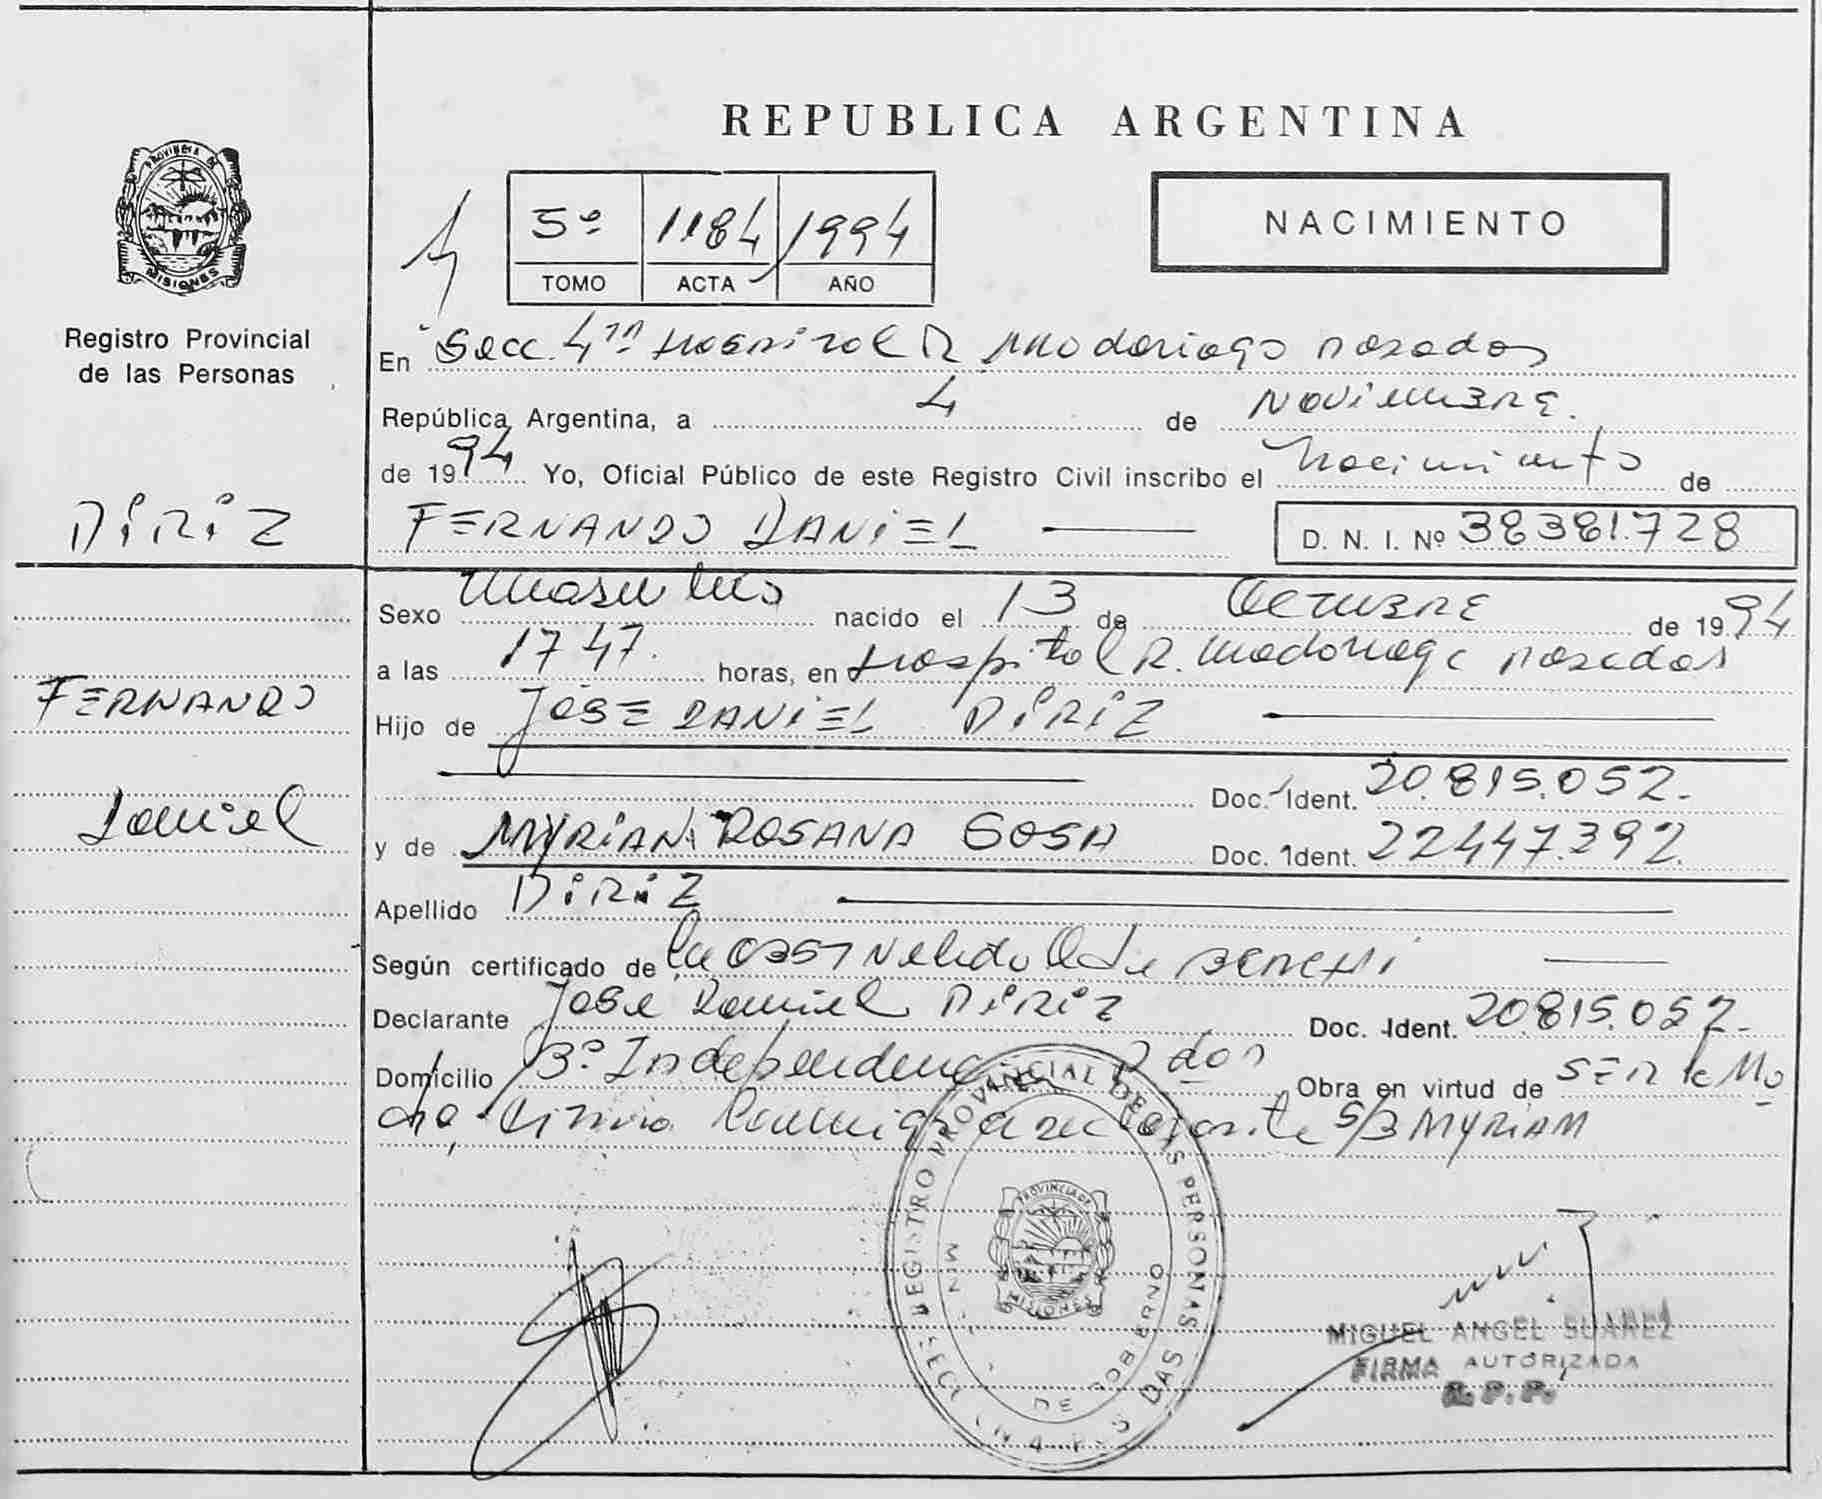 REPUBLICA ARGENTINA
PROVINCIA DE
MISIONES
Registro Provincial
de las Personas
5º 1184 1994
TOMO ACTA AÑO
NACIMIENTO
En Secc. 4ta Hospital R Madariaga Posadas
República Argentina, a 4 de Noviembre.
de 1994 Yo, Oficial Público de este Registro Civil inscribo el Nacimiento de
DiRiZ
FERNANDO DANiEL
D. N. I. Nº 38381.728
Sexo Masculino nacido el 13 de Octubre de 1994
a las 17 47. horas, en Hospital R. Madariaga Posadas
FERNANDO
Hijo de JOSE DANiEL DiRiZ
Doc. Ident. 20.815.052.
Daniel
y de MYRIAN ROSANA SOSA Doc. Ident. 22447.392.
Apellido DiRiZ
Según certificado de la Obst Nelida
Declarante Jose Daniel DiRiZ Doc. Ident. 20815.052.
Domicilio Bº Independencia Pdas Obra en virtud de SER
declarante S/B MYRIAM
REGISTRO PROVINCIAL DE LAS PERSONAS
PROVINCIA DE
MISIONES
DE GOBIERNO
MIGUEL ANGEL SUAREZ
FIRMA AUTORIZADA
R. P. P.